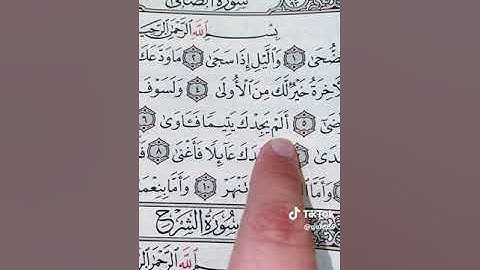 سُورَةُ الضُّحَى
بِسْمِ اللَّهِ الرَّحْمَٰنِ الرَّحِي
ضُّحَىٰ ١ وَالَّيْلِ إِذَا سَجَىٰ ٢ مَا وَدَّعَكَ
لَآخِرَةُ خَيْرٌ لَّكَ مِنَ الْأُولَىٰ ٤ وَلَسَوْفَ
ضَىٰ ٥ أَلَمْ يَجِدْكَ يَتِيمًا فَـَٔاوَىٰ ٦
دَىٰ دَكَ عَآئِلًا فَأَغْنَىٰ ٨ فَ
وَأَمَّا تَنْهَرْ ١٠ وَأَمَّا بِنِعْمَ
سُورَةُ الشَّرْحِ
اللَّهِ الرَّحْمَٰنِ الرَّ
TikTok